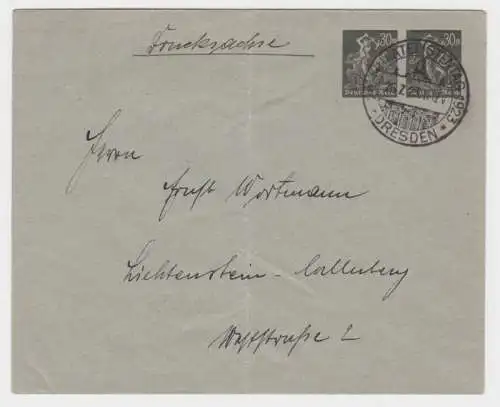 Drucksache
30 30
1923
DRESDEN
Herrn
Ernst Wortmann
Lichtenstein-Callnberg
Weststraße 2